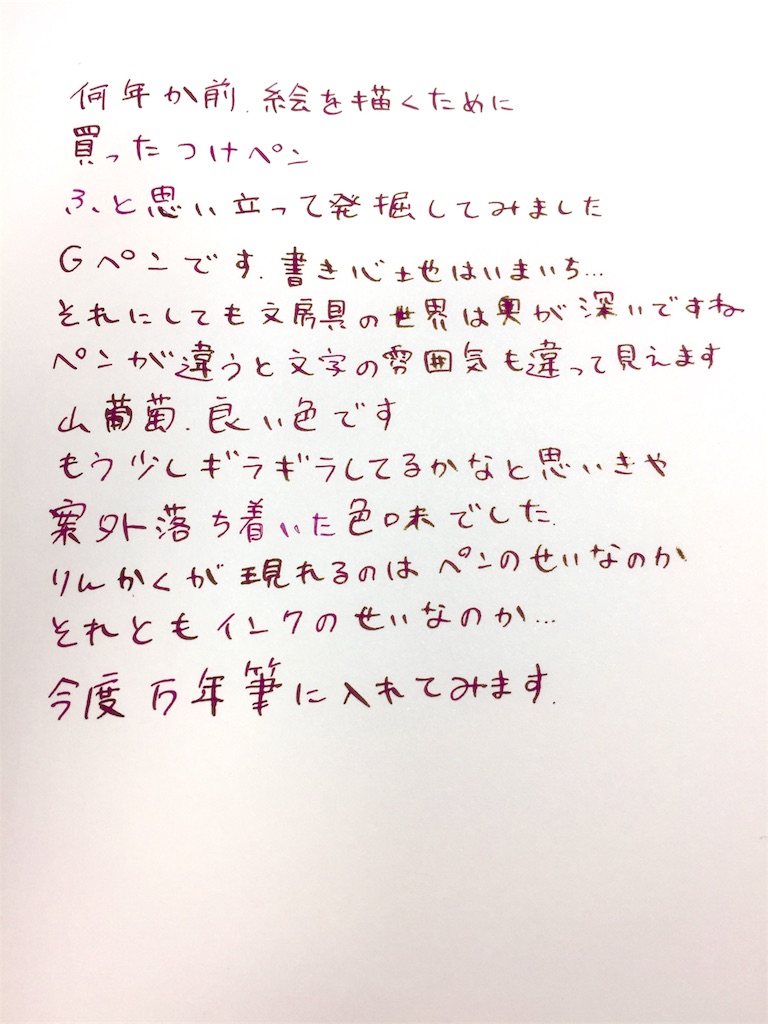 何年か前.絵を描くために
買ったつけペン
ふと思い立って発掘してみました
Gペンです.書き心地はいまいち…
それにしても文房具の世界は奥が深いですね
ペンが違うと文字の雰囲気も違って見えます
山葡萄.良い色です
もう少しギラギラしてるかなと思いきや
案外落ち着いた色味でした.
りんかくが現れるのはペンのせいなのか
それともインクのせいなのか…
今度万年筆に入れてみます.